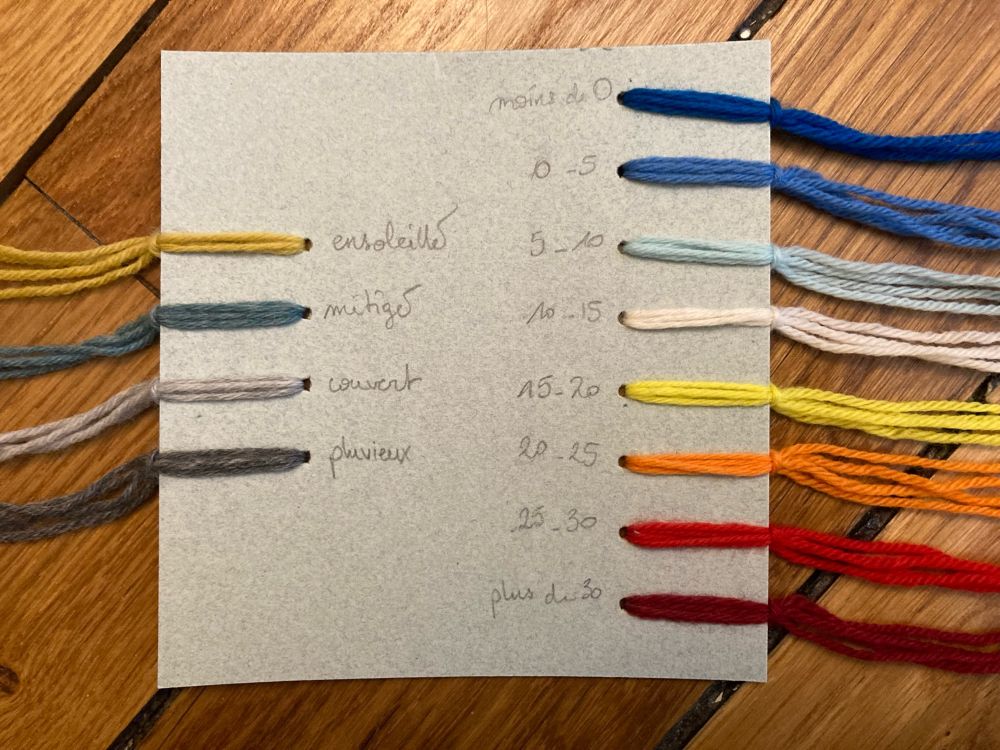 ensoleillé
mitigé
couvert
pluvieux
moins de 0
0 - 5
5 - 10
10 - 15
15 - 20
20 - 25
25 - 30
plus de 30